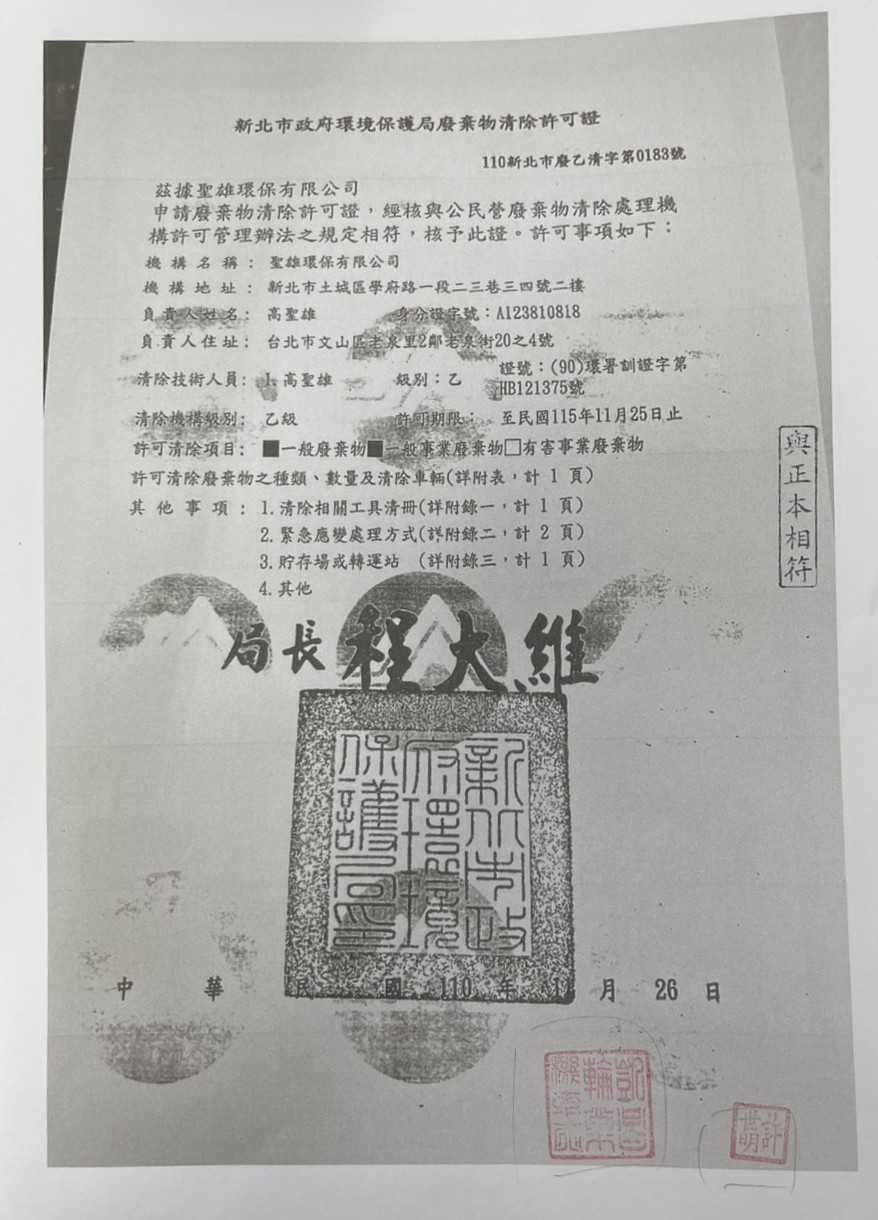 新北市政府環境保護局廢棄物清除許可證
110新北市廢乙清字第0183號
茲據聖雄環保有限公司
申請廢棄物清除許可證，經核與公民營廢棄物清除處理機
構許可管理辦法之規定相符，核予此證。許可事項如下：
機構名稱：聖雄環保有限公司
機構地址：新北市土城區學府路一段二三巷三四號二樓
負責人姓名：高聖雄 身分證字號：A123810818
負責人住址：台北市文山區老泉里2鄰老泉街20之4號
清除技術人員：1.高聖雄 級別：乙 證號：(90)環署訓證字第
HB121375號
清除機構級別：乙級 許可期限：至民國115年11月25日止
許可清除項目：■一般廢棄物■一般事業廢棄物□有害事業廢棄物
許可清除廢棄物之種類、數量及清除車輛(詳附表，計 1 頁)
其他事項：1.清除相關工具清冊(詳附錄一，計 1 頁)
2.緊急應變處理方式(詳附錄二，計 2 頁)
3.貯存場或轉運站 (詳附錄三，計 1 頁)
4.其他
與正本相符
局長 程大維
新北市政
府環境
保護局印
中華民國 110 年 11 月 26 日
許
萌